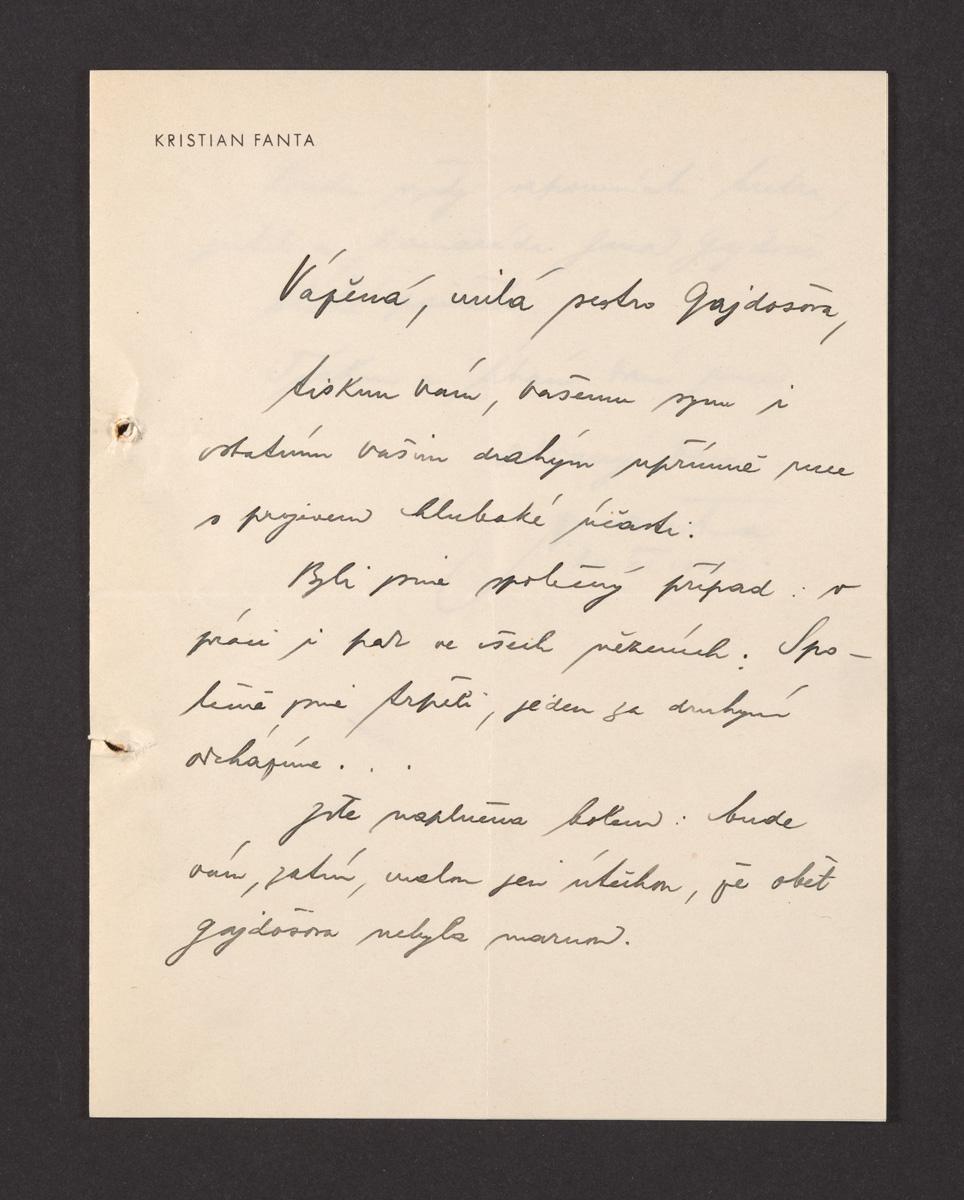 KRISTIAN FANTA
Vážená, milá sestro Gajdošova,
tisknu vám, vašemu synu i
ostatním vašim drahým upřímně ruce
s projevem hluboké účasti.
Byli jsme společný případ: v
práci i pak ve všech vězeních. Spo-
lečně jsme trpěli, jeden za druhým
odcházíme...
Jste naplněna bolem: bude
vám, zatím, malou jen útěchou, že oběť
Gajdošova nebyla marnou.